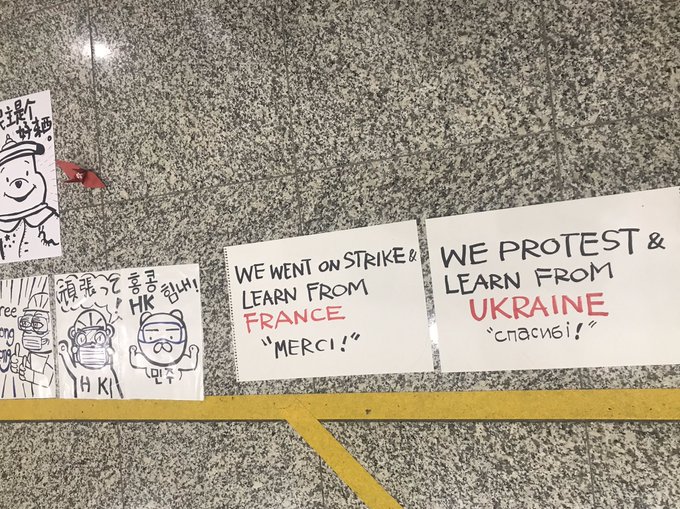 主是个
好東西。
ree
ong
頑張って!
HK
홍콩 힘내!
HK
민주
WE WENT ON STRIKE &
LEARN FROM
FRANCE
"MERCI!"
WE PROTEST &
LEARN FROM
UKRAINE
"спасибі!"